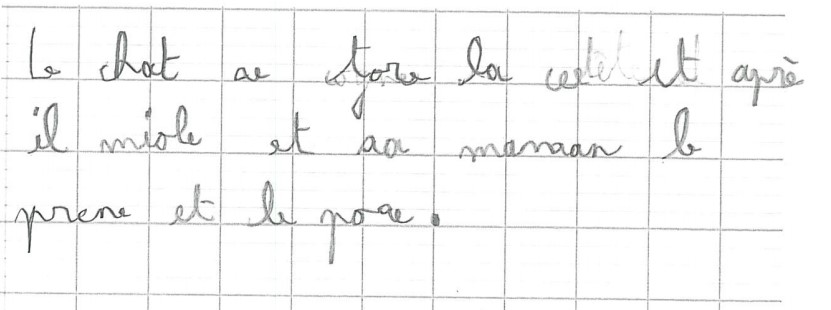 Le chat se tore la cetet et après
il miole et sa mamaan le
prene et le pose.